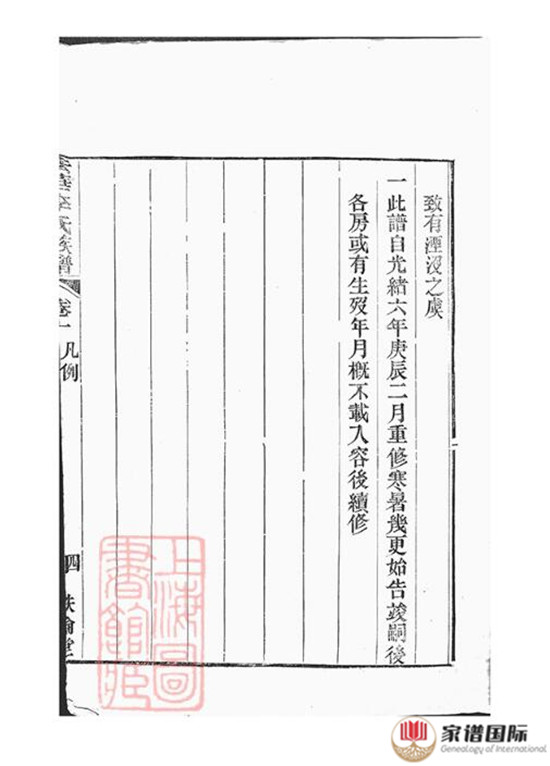 致有湮沒之虞
一此譜自光緒六年庚辰二月重修寒暑幾更始告竣嗣後
各房或有生歿年月概不載入容後續修
李氏族譜
卷一 凡例
四
堂
上海圖
書館藏
家谱国际
Genealogy of International